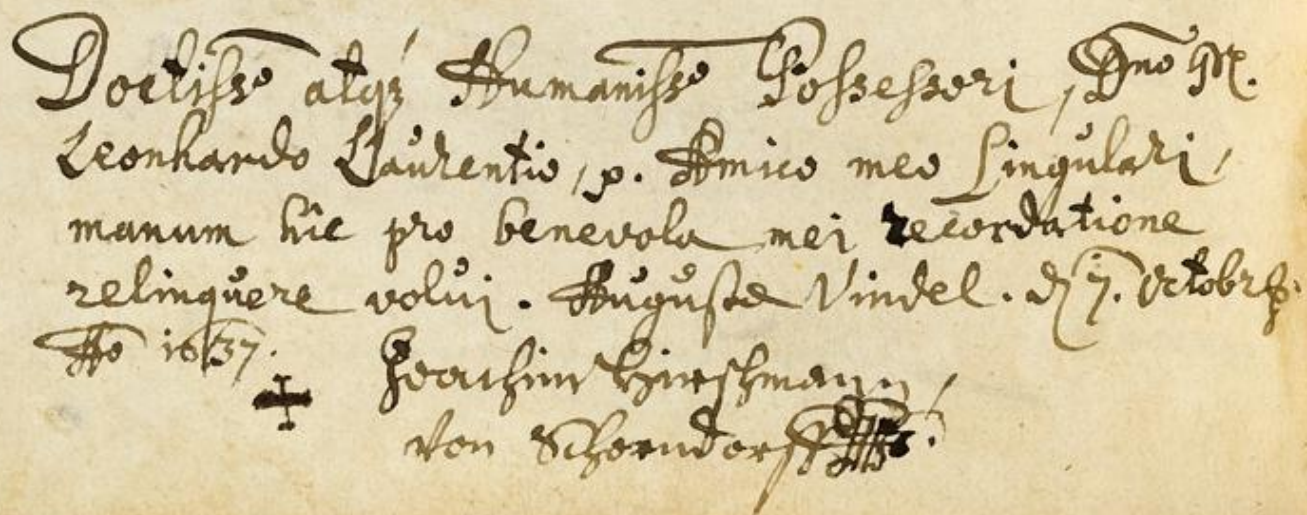 Doctissº atqz Humanissº Possessori, Dnō M.
Leonhardo Laurentio, p. Amico meo Singulari,
manum hîc pro benevola mei recordatione
relinquere voluj. Augustæ Vindel. d. 7. Octobris.
Aō 1637.
Joachim Hirschmann,
von Schorndorff